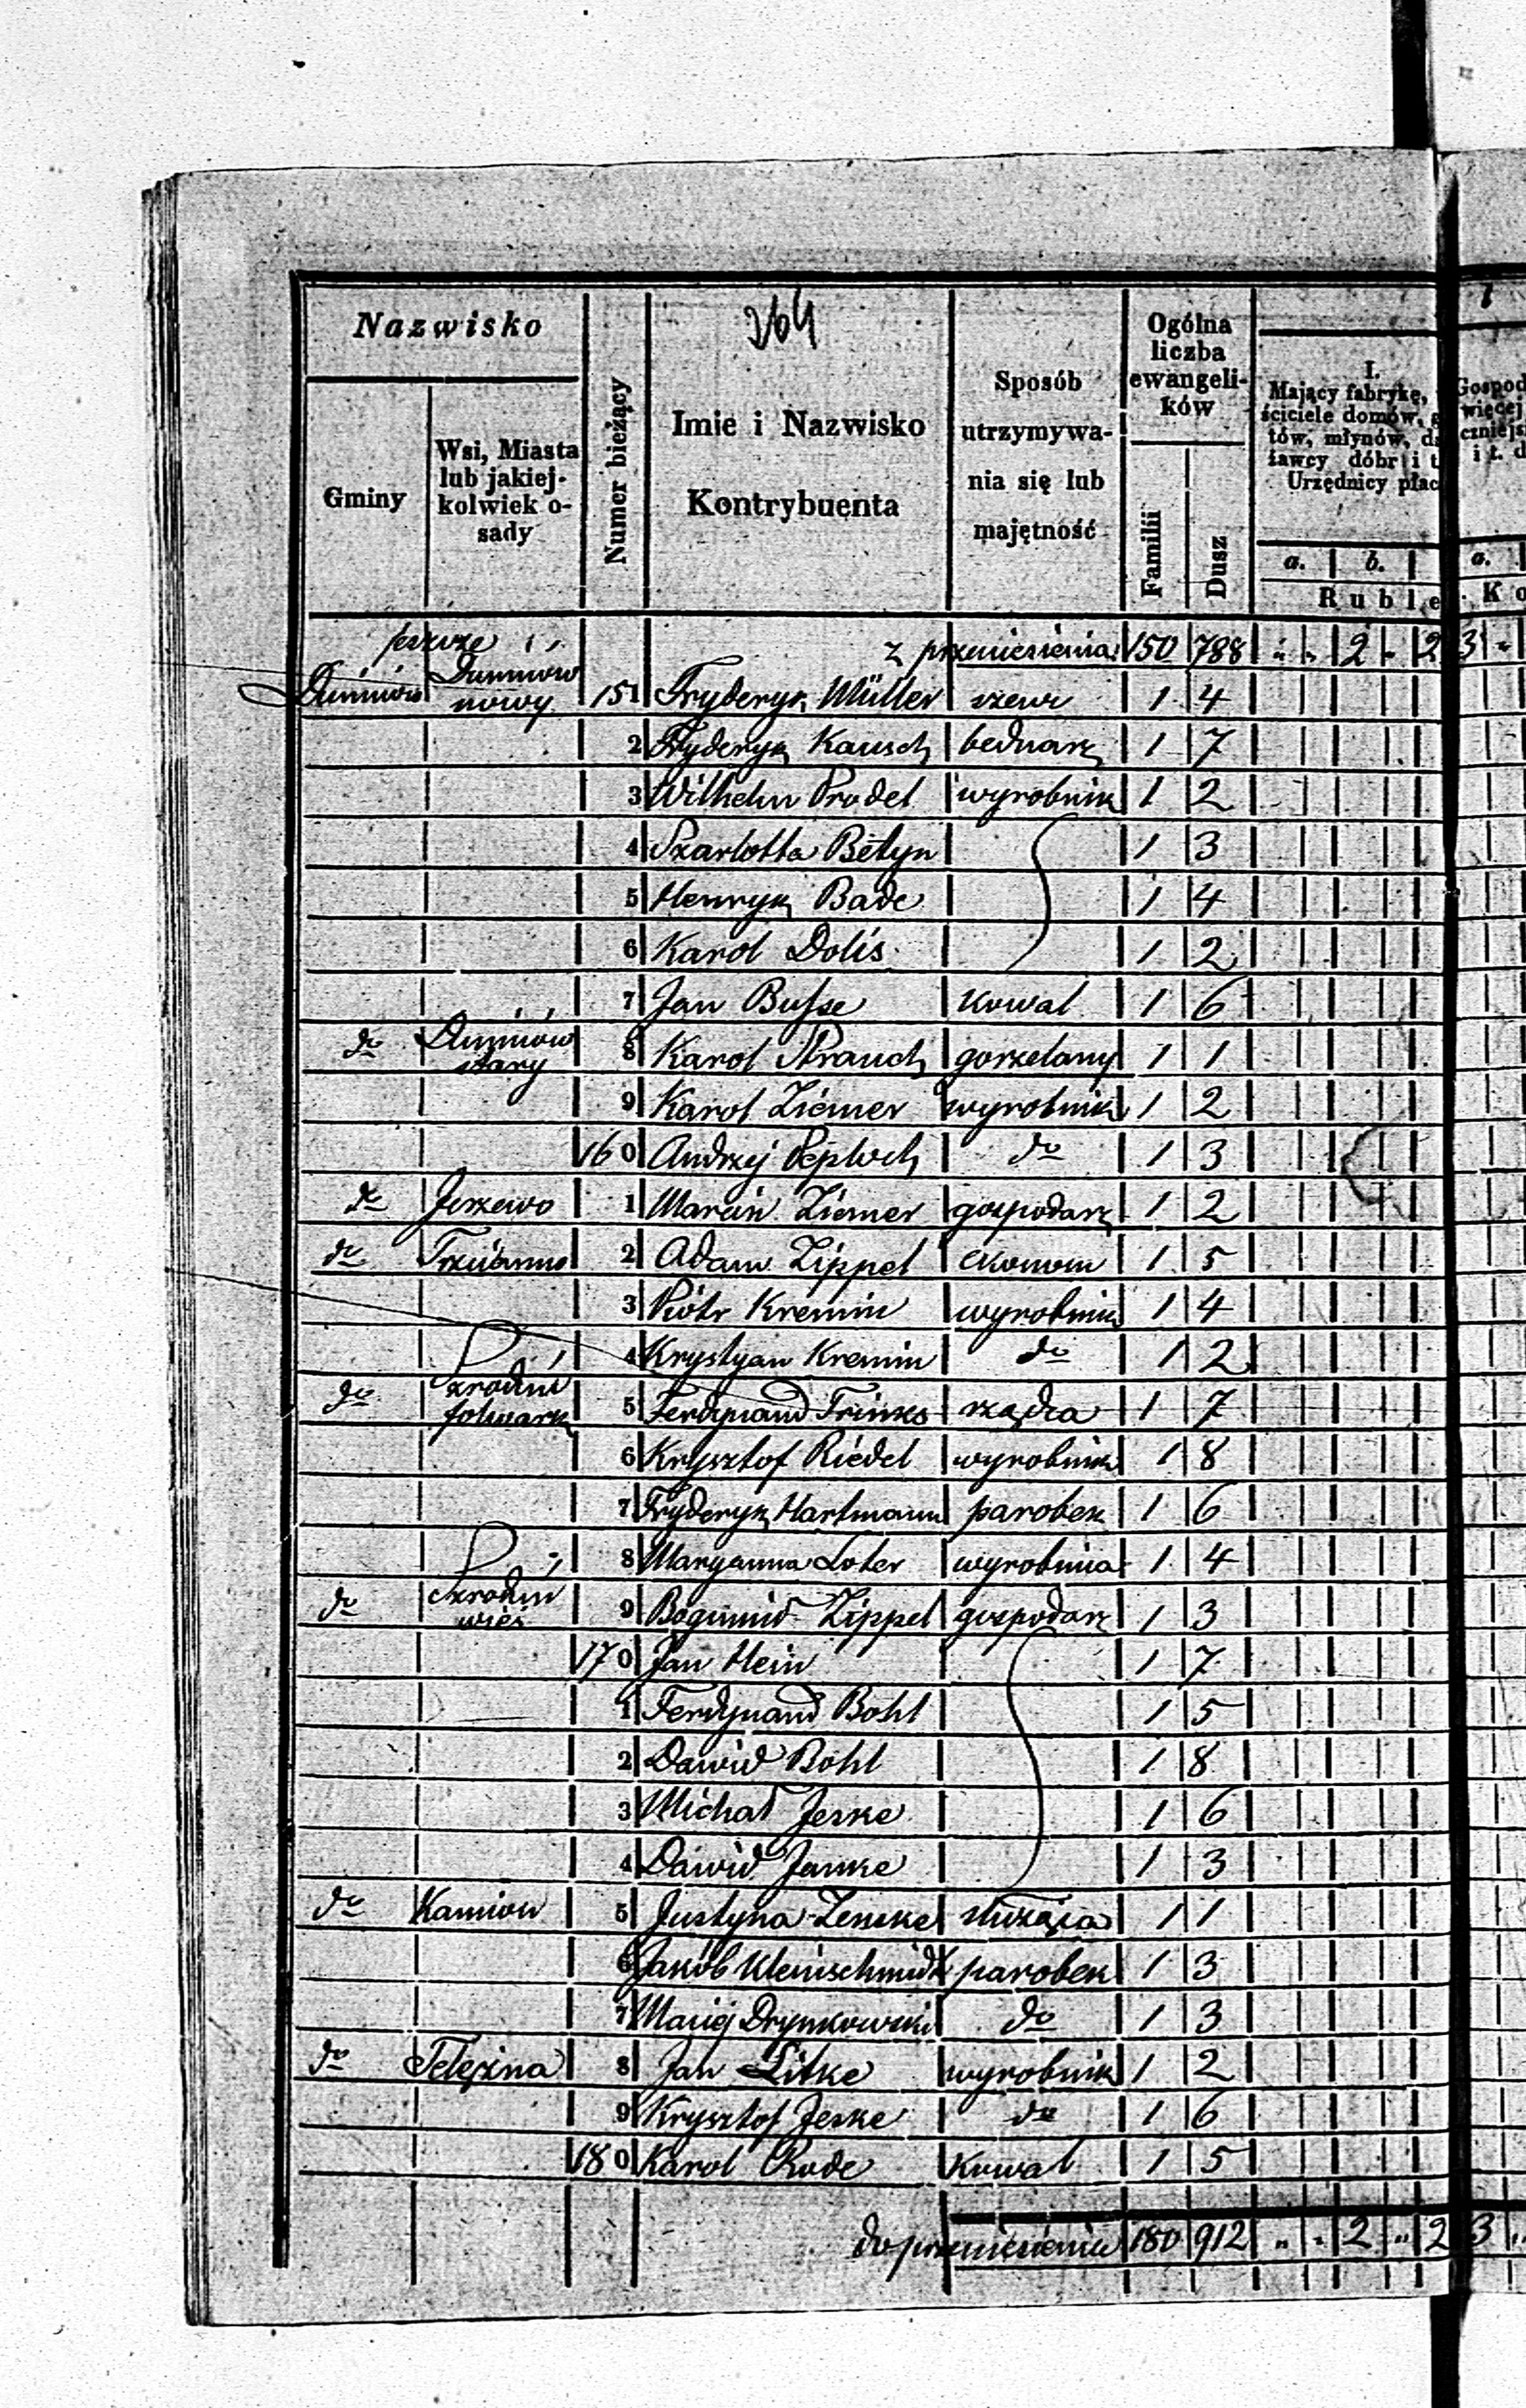 264
Nazwisko
Gminy
Wsi, Miasta lub jakiej-kolwiek o-sady
Numer bieżący
Imie i Nazwisko Kontrybuenta
Sposób utrzymywa-nia się lub majętność
Ogólna liczba ewangeli-ków
Familii
Dusz
I.
Mający fabrykę,
ściciele domów, g
tów, młynów, d
żawcy dóbr i t
Urzędnicy płac
a. b.
Ruble
Gospod
więcej
czniejs
i t. d
a.
Ko
jeszcze z przeniesienia 150 788 " " 2 " 2 3 "
nowy 151 Fryderyk Müller szewc 1 4
2 Fryderyk Kausch bednarz 1 7
3 Wilhelm Prodel wyrobnik 1 2
4 Szarlotta Betyn 1 3
5 Henryk Bade 1 4
6 Karol Dolis 1 2
7 Jan Busse kowal 1 6
do stary 8 Karol Strauch gorzelany 1 1
9 Karol Ziemer wyrobnik 1 2
160 Andrzej do 1 3
do Jerzewo 1 Marcin Ziemer gospodarz 1 2
do 2 Adam Zippel ekonom 1 5
3 Piotr Kremin wyrobnik 1 4
4 Krystyan Kremin do 1 2
do folwark 5 Ferdynand Trinks rządca 1 7
6 Krysztof Riedel wyrobnik 1 8
7 Fryderyk Hartmann parobek 1 6
8 Maryanna Loter wyrobnica 1 4
do wieś 9 Bogumid Zippel gospodarz 1 3
170 Jan Hein 1 7
1 Ferdynand Bohl 1 5
2 Dawid Bohl 1 8
3 Michał Jeske 1 6
4 Dawid Janke 1 3
do Kamion 5 Justyna Zenske służąca 1 1
6 Jakób Kleinschmidt parobek 1 3
7 Maciej Drynkowski do 1 3
do 8 Jan Litke wyrobnik 1 2
9 Krysztof Jeske do 1 6
180 Karol Rode kowal 1 5
do przeniesienia 180 912 " " 2 " 2 3 "